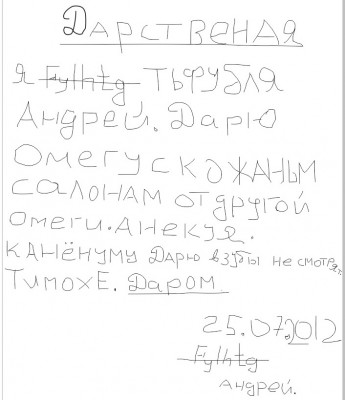 Дарственая
я Fylhtg ТЬФРУБЛЯ
Андрей. Дарю
Омегу с кожаным
салонам от другой
омеги. Анекуя.
канёнуму Дарю в зубы не смотрят.
Тимохе. Даром
25.07.2012
Fylhtg
Андрей.